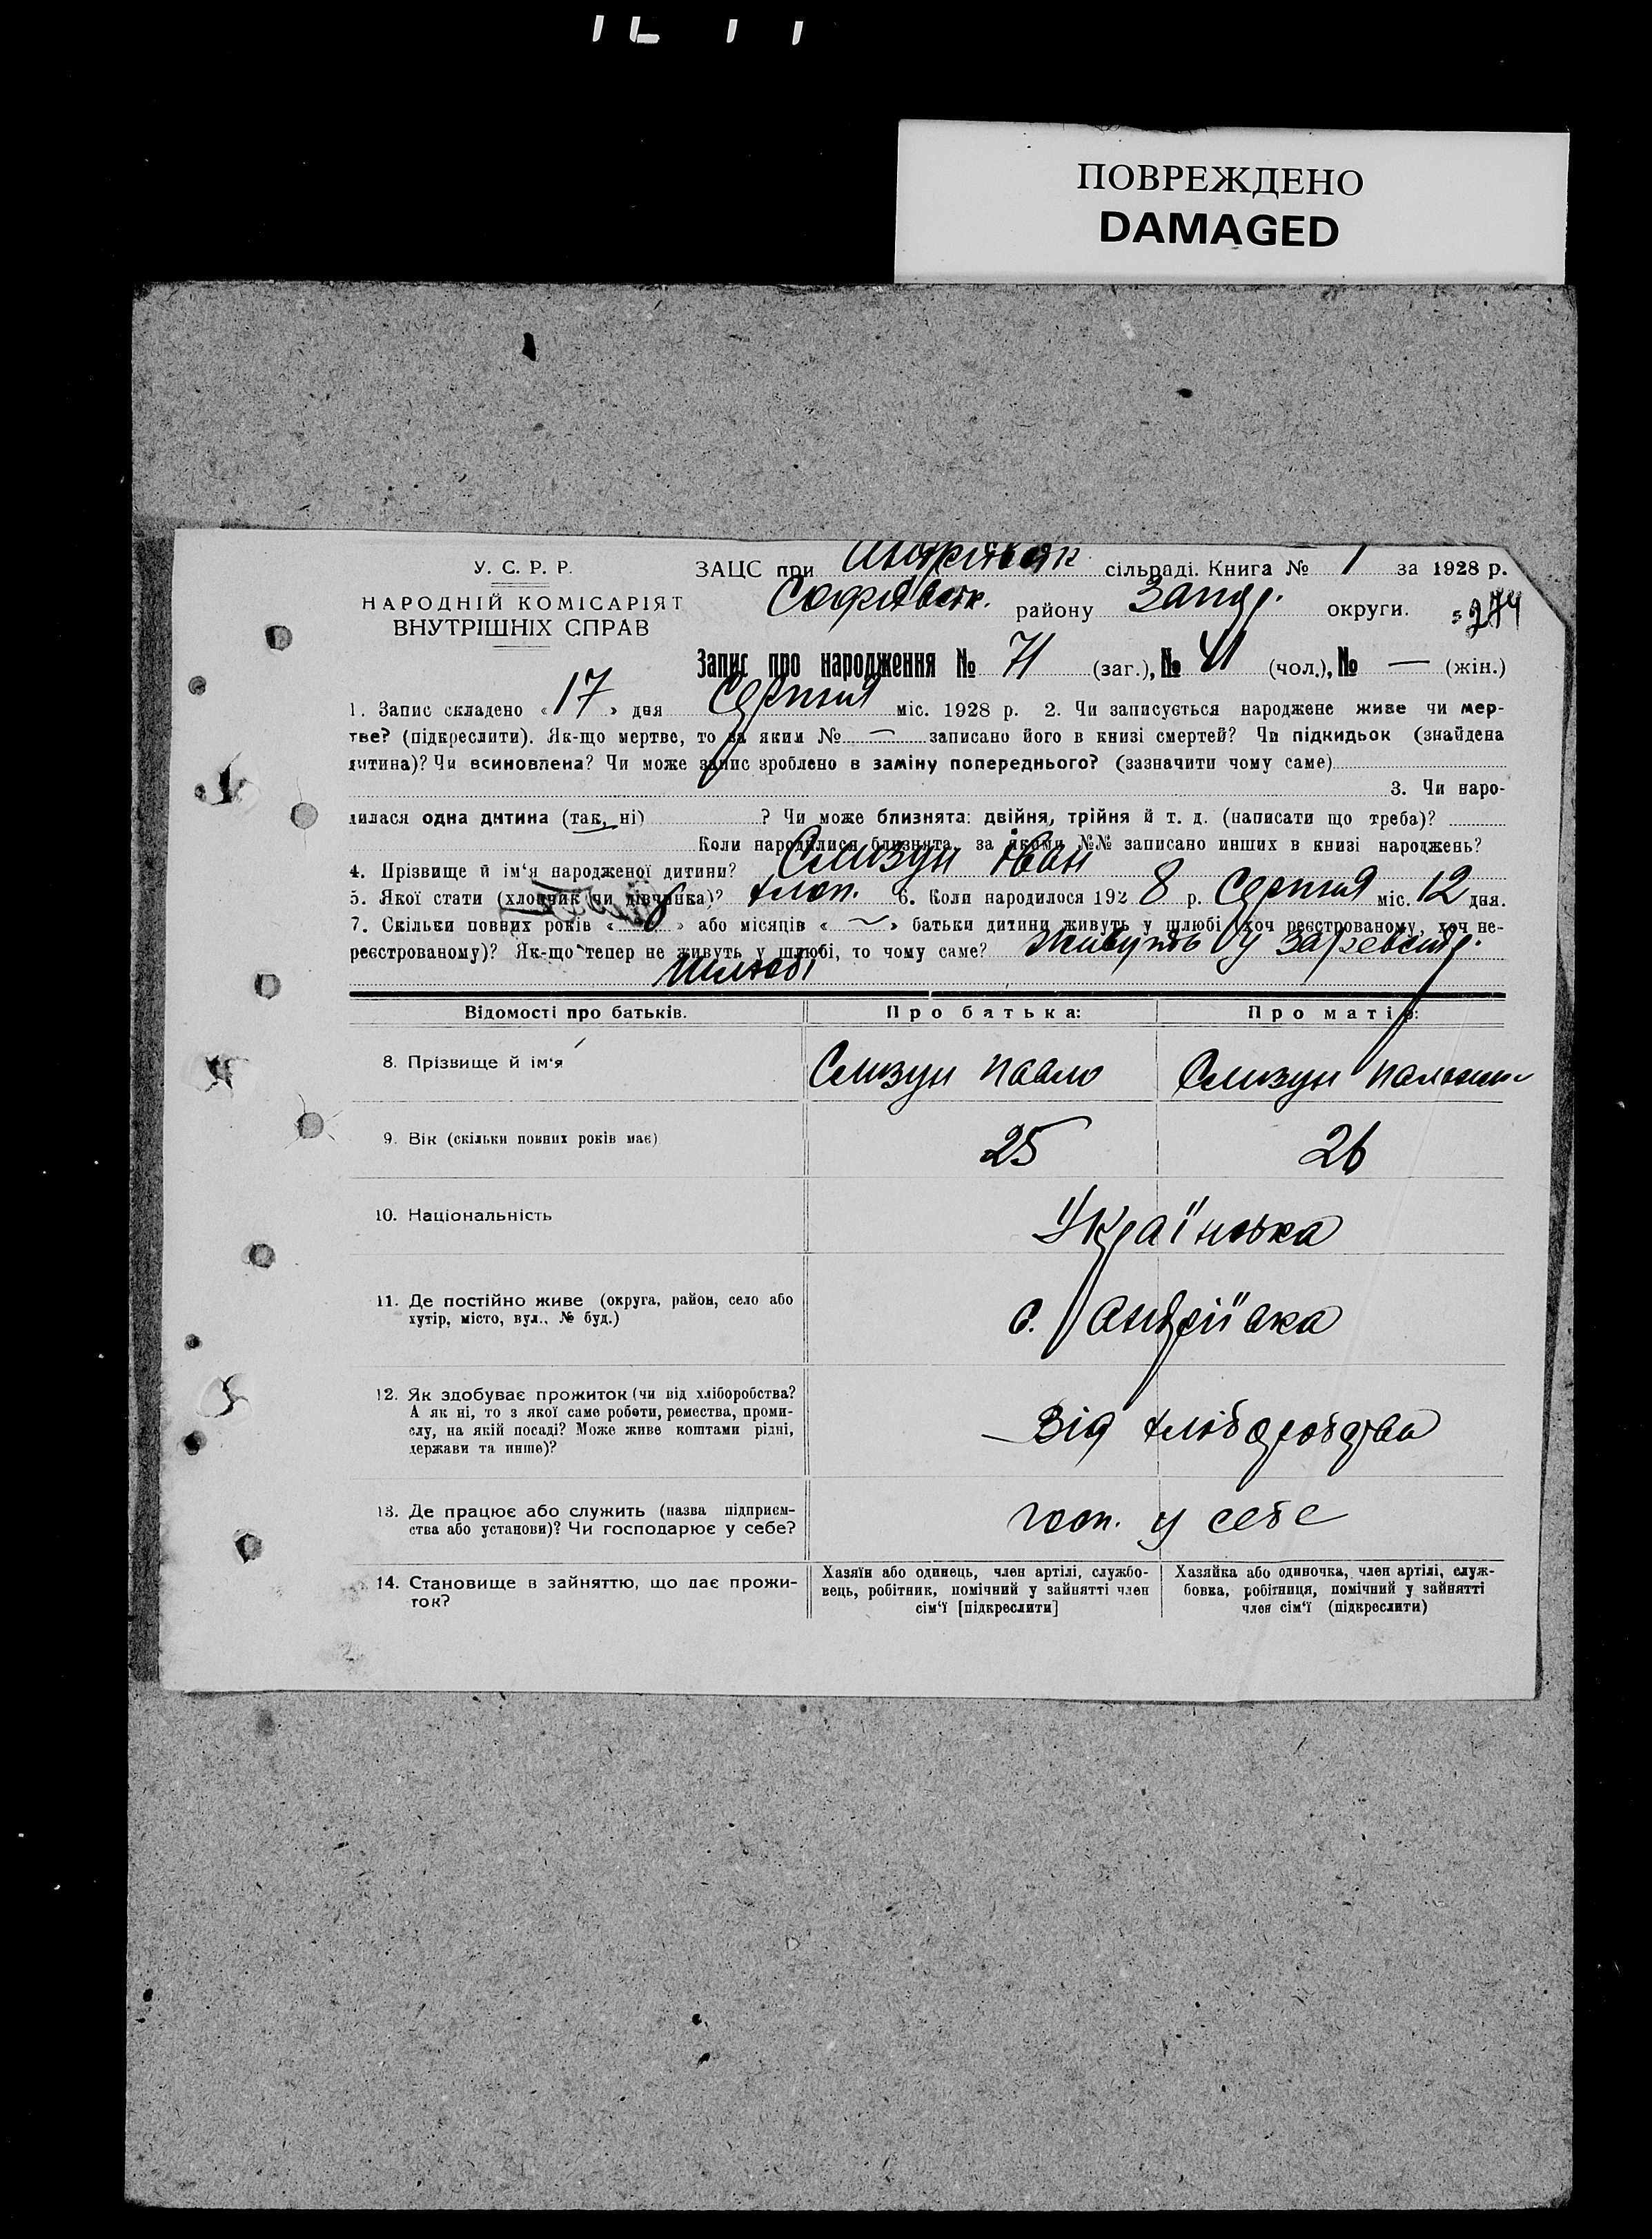 ПОВРЕЖДЕНО
DAMAGED
У. С. Р. Р.
НАРОДНІЙ КОМІСАРІЯТ
ВНУТРІШНІХ СПРАВ
ЗАЦС при Андріївськ сільраді. Книга № 1 за 1928 р.
Софіївськ. району Запор. округи. 274
Запис про народження № 71 (заг.), № 41 (чол.), № — (жін.)
1. Запис складено «17» дня Серпня міс. 1928 р. 2. Чи записується народжене живе чи мер-
тве? (підкреслити). Як-що мертве, то за яким № — записано його в книзі смертей? Чи підкидьок (знайдена
дитина)? Чи всиновлена? Чи може запис зроблено в заміну попереднього? (зазначити чому саме)
3. Чи наро-
дилася одна дитина (так, ні) ? Чи може близнята: двійня, трійня й т. д. (написати що треба)?
Коли народилися близнята, за якими №№ записано инших в книзі народжень?
4. Прізвище й ім'я народженої дитини? Слизун Іван
5. Якої статі (хлопчик чи дівчинка)? хлоп. 6. Коли народилося 1928 р. Серпня міс. 12 дня.
7. Скільки повних років « 6 » або місяців « ~ » батьки дитини живуть у шлюбі (хоч реєстрованому, хоч не-
реєстрованому)? Як-що тепер не живуть у шлюбі, то чому саме? Живуть у зареєстр.
Шлюбі
Відомості про батьків. Про батька: Про матір:
8. Прізвище й ім'я Слизун Павло Слизун
9. Вік (скільки повних років має) 25 26
10. Національність Українська
11. Де постійно живе (округа, район, село або
хутір, місто, вул., № буд.) с. Андріївка
12. Як здобуває прожиток (чи від хліборобства?
А як ні, то з якої саме роботи, ремества, проми-
слу, на якій посаді? Може живе коштами рідні,
держави та инше)? Від хліборобства
13. Де працює або служить (назва підприєм-
ства або установи)? Чи господарює у себе? госп. у себе
14. Становище в зайняттю, що дає прожи-
ток?
Хазяїн або одинець, член артілі, службо-
вець, робітник, помічний у зайнятті член
сім'ї [підкреслити]
Хазяйка або одиночка, член артілі, служ-
бовка, робітниця, помічний у зайнятті
член сім'ї (підкреслити)